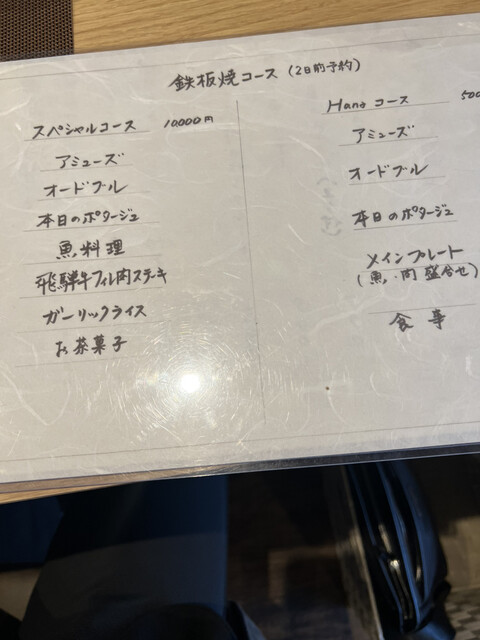 鉄板焼コース (2日前予約)
スペシャルコース 10,000円
アミューズ
オードブル
本日のポタージュ
魚料理
飛騨牛フィレ肉ステーキ
ガーリックライス
お茶菓子
Hana コース 500
アミューズ
オードブル
本日のポタージュ
メインプレート
(魚・肉 盛合せ)
食事